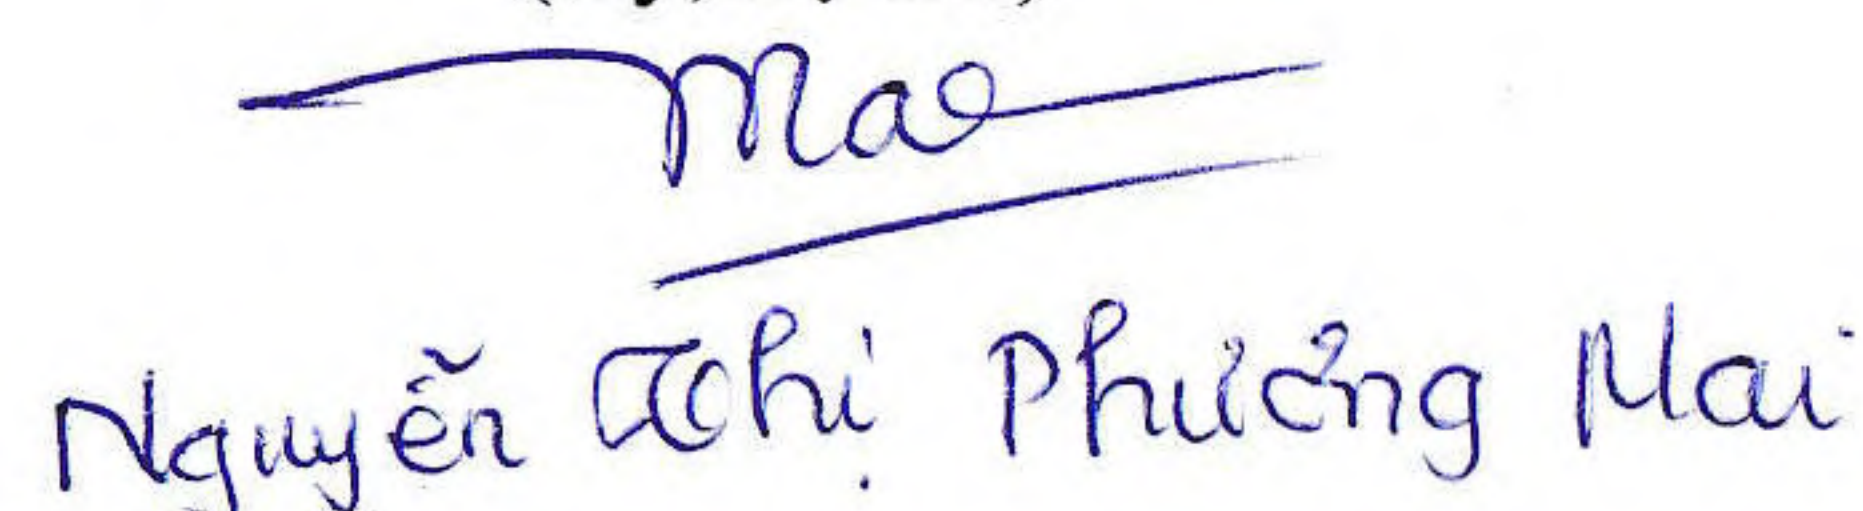 Nguyễn Thị Phưởng Mai